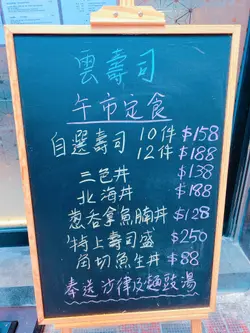 雲壽司
午市定食
自選壽司 10件 $158
12件 $188
三色丼 $138
北海丼 $188
葱吞拿魚腩丼 $128
特上壽司盛 $250
角切魚生丼 $88
奉送沙律及麵豉湯